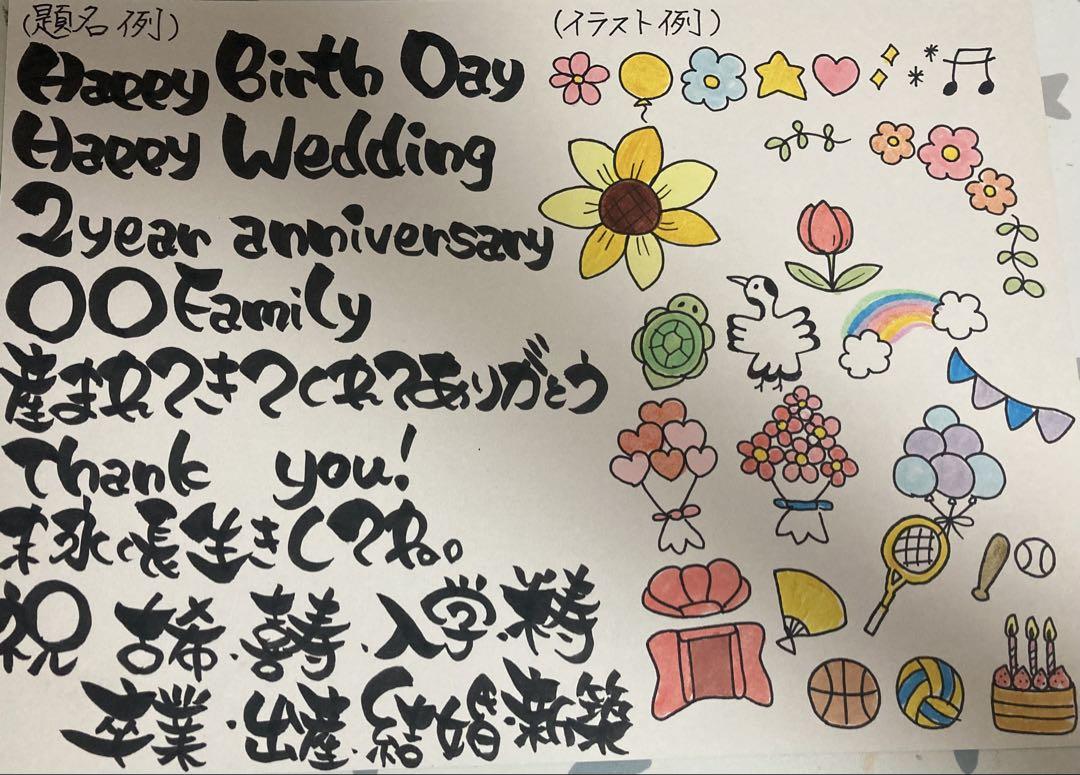 (題名例)
Happy Birth Day
Happy Wedding
2year anniversary
〇〇Family
産まれてきてくれてありがとう
Thank you!
末永く長生きしてね。
祝〇 古希・喜寿・入学・
卒業・出産・結婚・新築
(イラスト例)